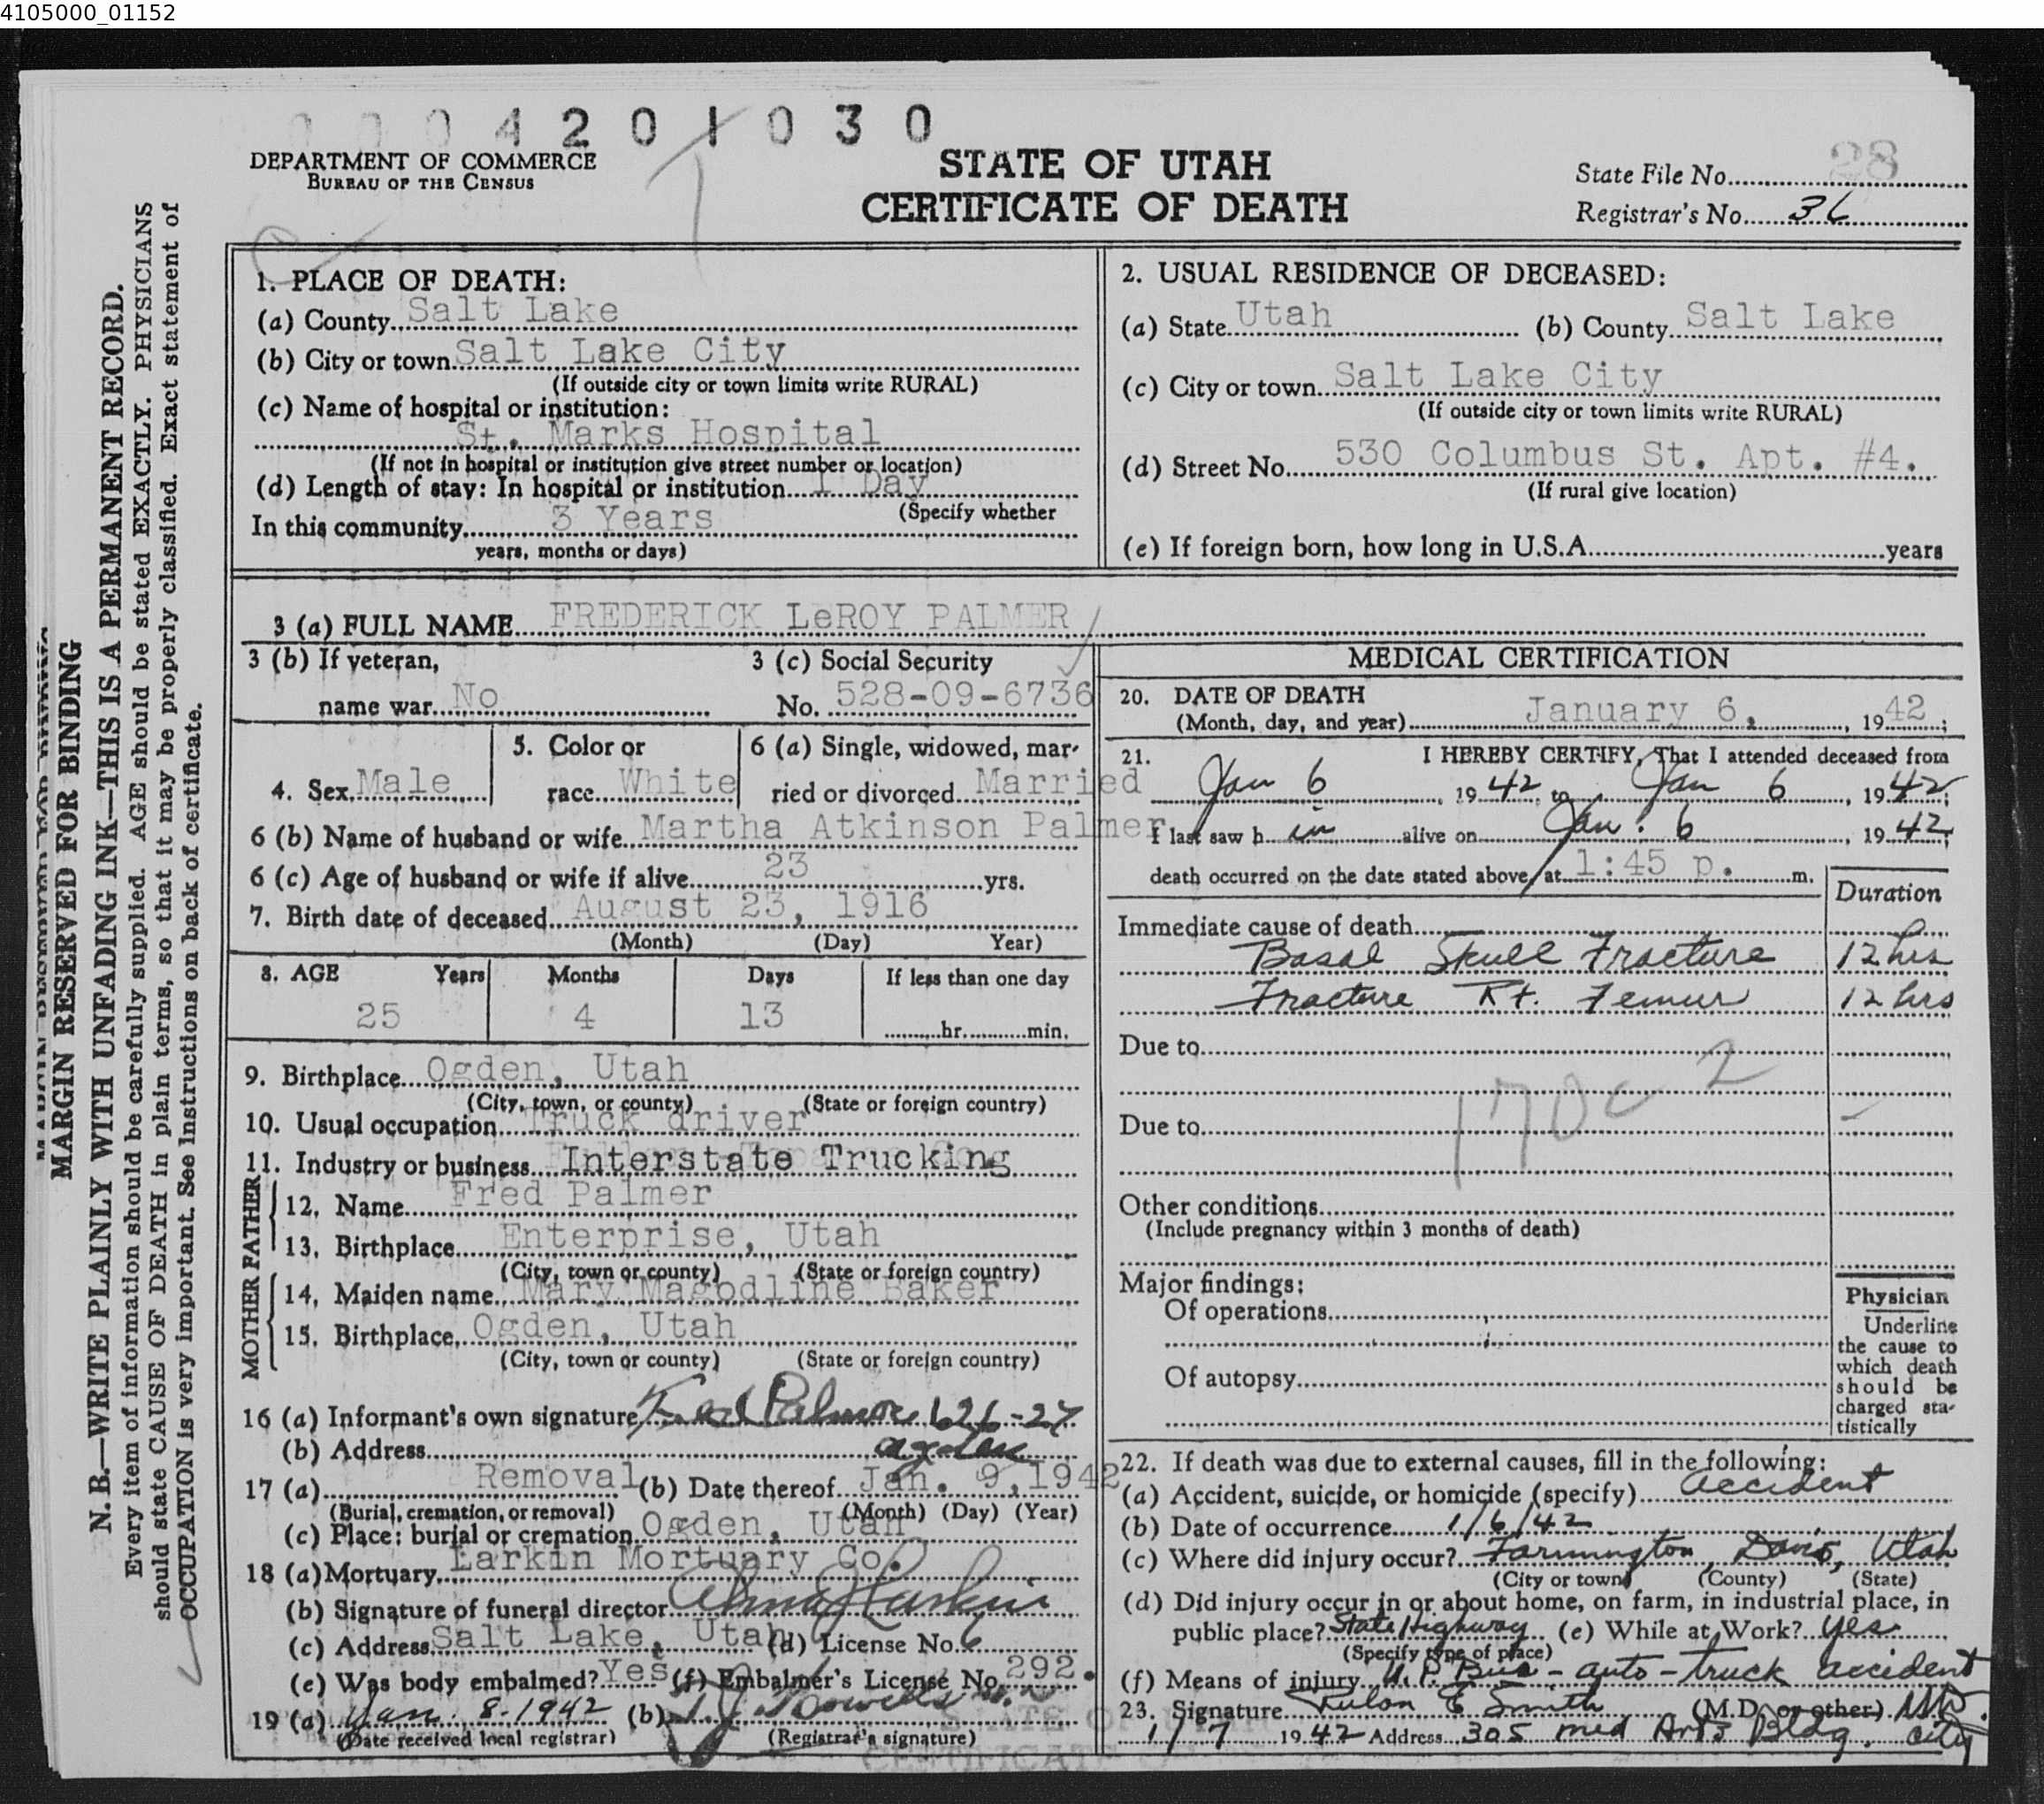 4105000_01152
0004201030
DEPARTMENT OF COMMERCE
BUREAU OF THE CENSUS
STATE OF UTAH
CERTIFICATE OF DEATH
State File No. 28
Registrar's No. 36
MARGIN RESERVED FOR BINDING
N. B.—WRITE PLAINLY WITH UNFADING INK—THIS IS A PERMANENT RECORD.
Every item of information should be carefully supplied. AGE should be stated EXACTLY. PHYSICIANS
should state CAUSE OF DEATH in plain terms, so that it may be properly classified. Exact statement of
OCCUPATION is very important. See instructions on back of certificate.
1. PLACE OF DEATH:
(a) County Salt Lake
(b) City or town Salt Lake City
(If outside city or town limits write RURAL)
(c) Name of hospital or institution:
St. Marks Hospital
(If not in hospital or institution give street number or location)
(d) Length of stay: In hospital or institution 1 Day
(Specify whether
In this community 3 Years
years, months or days)
2. USUAL RESIDENCE OF DECEASED:
(a) State Utah (b) County Salt Lake
(c) City or town Salt Lake City
(If outside city or town limits write RURAL)
(d) Street No. 530 Columbus St. Apt. #4.
(If rural give location)
(e) If foreign born, how long in U.S.A. years
3 (a) FULL NAME FREDERICK LeROY PALMER
3 (b) If veteran,
name war No
3 (c) Social Security
No. 528-09-6736
4. Sex Male
5. Color or
race White
6 (a) Single, widowed, mar-
ried or divorced Married
6 (b) Name of husband or wife Martha Atkinson Palmer
6 (c) Age of husband or wife if alive 23 yrs.
7. Birth date of deceased August 23, 1916
(Month) (Day) Year)
8. AGE Years Months Days If less than one day
25 4 13 hr. min.
9. Birthplace Ogden, Utah
(City, town, or county) (State or foreign country)
10. Usual occupation Truck driver
11. Industry or business Interstate Trucking
FATHER
12. Name Fred Palmer
13. Birthplace Enterprise, Utah
(City, town or county) (State or foreign country)
MOTHER
14. Maiden name Mary Magodline Baker
15. Birthplace Ogden, Utah
(City, town or county) (State or foreign country)
16 (a) Informant's own signature Fred Palmer 626-27
(b) Address Ogden
17 (a) Removal (b) Date thereof Jan. 9, 1942
(Burial, cremation, or removal) (Month) (Day) (Year)
(c) Place: burial or cremation Ogden, Utah
18 (a) Mortuary Larkin Mortuary Co.
(b) Signature of funeral director Alma J Larkin
(c) Address Salt Lake, Utah (d) License No. 6
(e) Was body embalmed? Yes (f) Embalmer's License No. 292.
19 (a) Jan. 8-1942 (b)
(Date received local registrar) (Registrar's signature)
MEDICAL CERTIFICATION
20. DATE OF DEATH
(Month, day, and year) January 6, 1942;
21. I HEREBY CERTIFY, That I attended deceased from
Jan 6, 1942, to Jan 6, 1942;
I last saw h im alive on Jan. 6, 1942;
death occurred on the date stated above, at 1:45 p. m.
Duration
Immediate cause of death
Basal Skull Fracture 12 hrs
Fracture Rt. Femur 12 hrs
Due to
170c 2
Due to
Other conditions
(Include pregnancy within 3 months of death)
Major findings:
Of operations
Of autopsy
Physician
Underline
the cause to
which death
should be
charged sta-
tistically
22. If death was due to external causes, fill in the following:
(a) Accident, suicide, or homicide (specify) accident
(b) Date of occurrence 1/6/42
(c) Where did injury occur? Farmington, Davis, Utah
(City or town) (County) (State)
(d) Did injury occur in or about home, on farm, in industrial place, in
public place? State Highway (e) While at Work? yes
(Specify type of place)
(f) Means of injury U.P. Bus - auto - truck accident
23. Signature Rulon E Smith (M.D. or other) M.D.
1/7 1942 Address 305 Med Arts Bldg. City